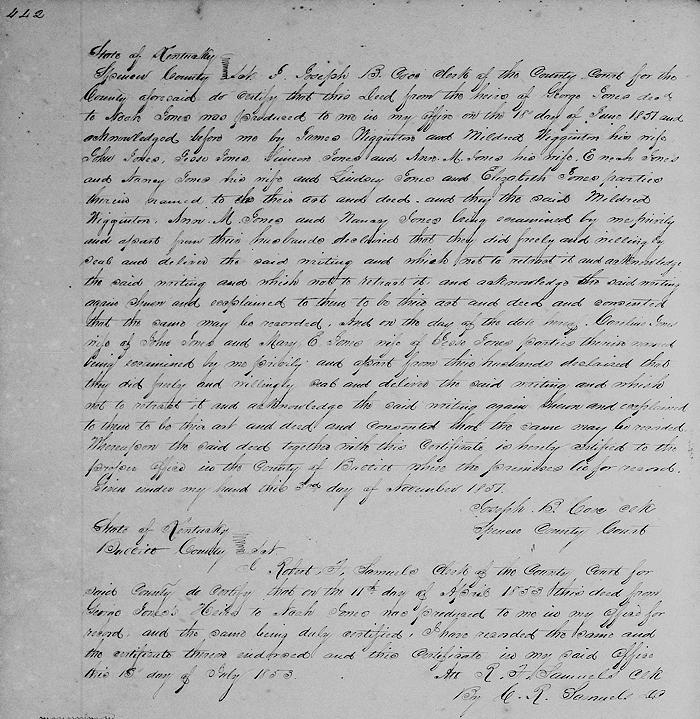 442
State of Kentucky
Spencer County Sct. I Joseph B. Cox clerk of the County Court for the
County aforesaid do certify that this Deed from the heirs of George Jones decd
to Noah Jones was produced to me in my office on the 18 day of June 1851 and
acknowledged before me by James Wigginton and Mildred Wigginton his wife
John Jones, Jesse Jones Simeon Jones and Ann. M Jones his wife. Enoch Jones
and Nancy Jones his wife and Lindsey Jones and Elizabeth Jones parties
therein named to be their act and deed. and they the said Mildred
Wigginton. Ann. M Jones and Nancy Jones being examined by me privily
and apart from their husbands declaired that they did freely and willingly
seal and deliver the said writing and which not to retract it and acknowledge
the said writing and which not to retract it. and acknowledge the said writing
again shewn and explained to them to be their act and deed and consented
that the same may be recorded. And on the day of the date hereof Caroline Jones
wife of John Jones and Mary C Jones wife of Jesse Jones parties therein named
being examined by me privily and apart from their husbands declaired that
they did freely and willingly seal and deliver the said writing and which
not to retract it and acknowledge the said writing again shewn and explained
to them to be their act and deed and consented that the same may be recorded
Whereupon the said deed together with this Certificate is hereby certified to the
proper office in the County of Bullitt where the premises lie for record.
Given under my hand this 3rd day of November 1851.
Joseph. B. Cox clk
Spencer County Court
State of Kentucky
Bullitt County Sct
I Robert F. Samuels Clerk of the County Court for
said County do certify that on the 11th day of April 1853 this deed from
George Jones's Heirs to Noah Jones was produced to me in my office for
record. and the same being duly certified, I have recorded the same and
the certificate thereon endorsed and this Certificate in my said office
this 15 day of July 1853.
Att R. F. Samuels clk
By C. R. Samuels DC